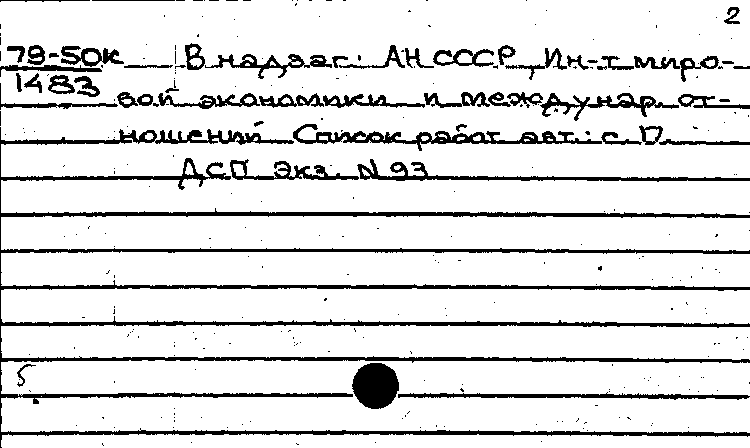 2
79-50к В надзаг.: АН СССР, Ин-т миро-
1483
вой экономики и междунар. от-
ношений Список работ авт.: с. 17.
ДСП Экз. N 93
5